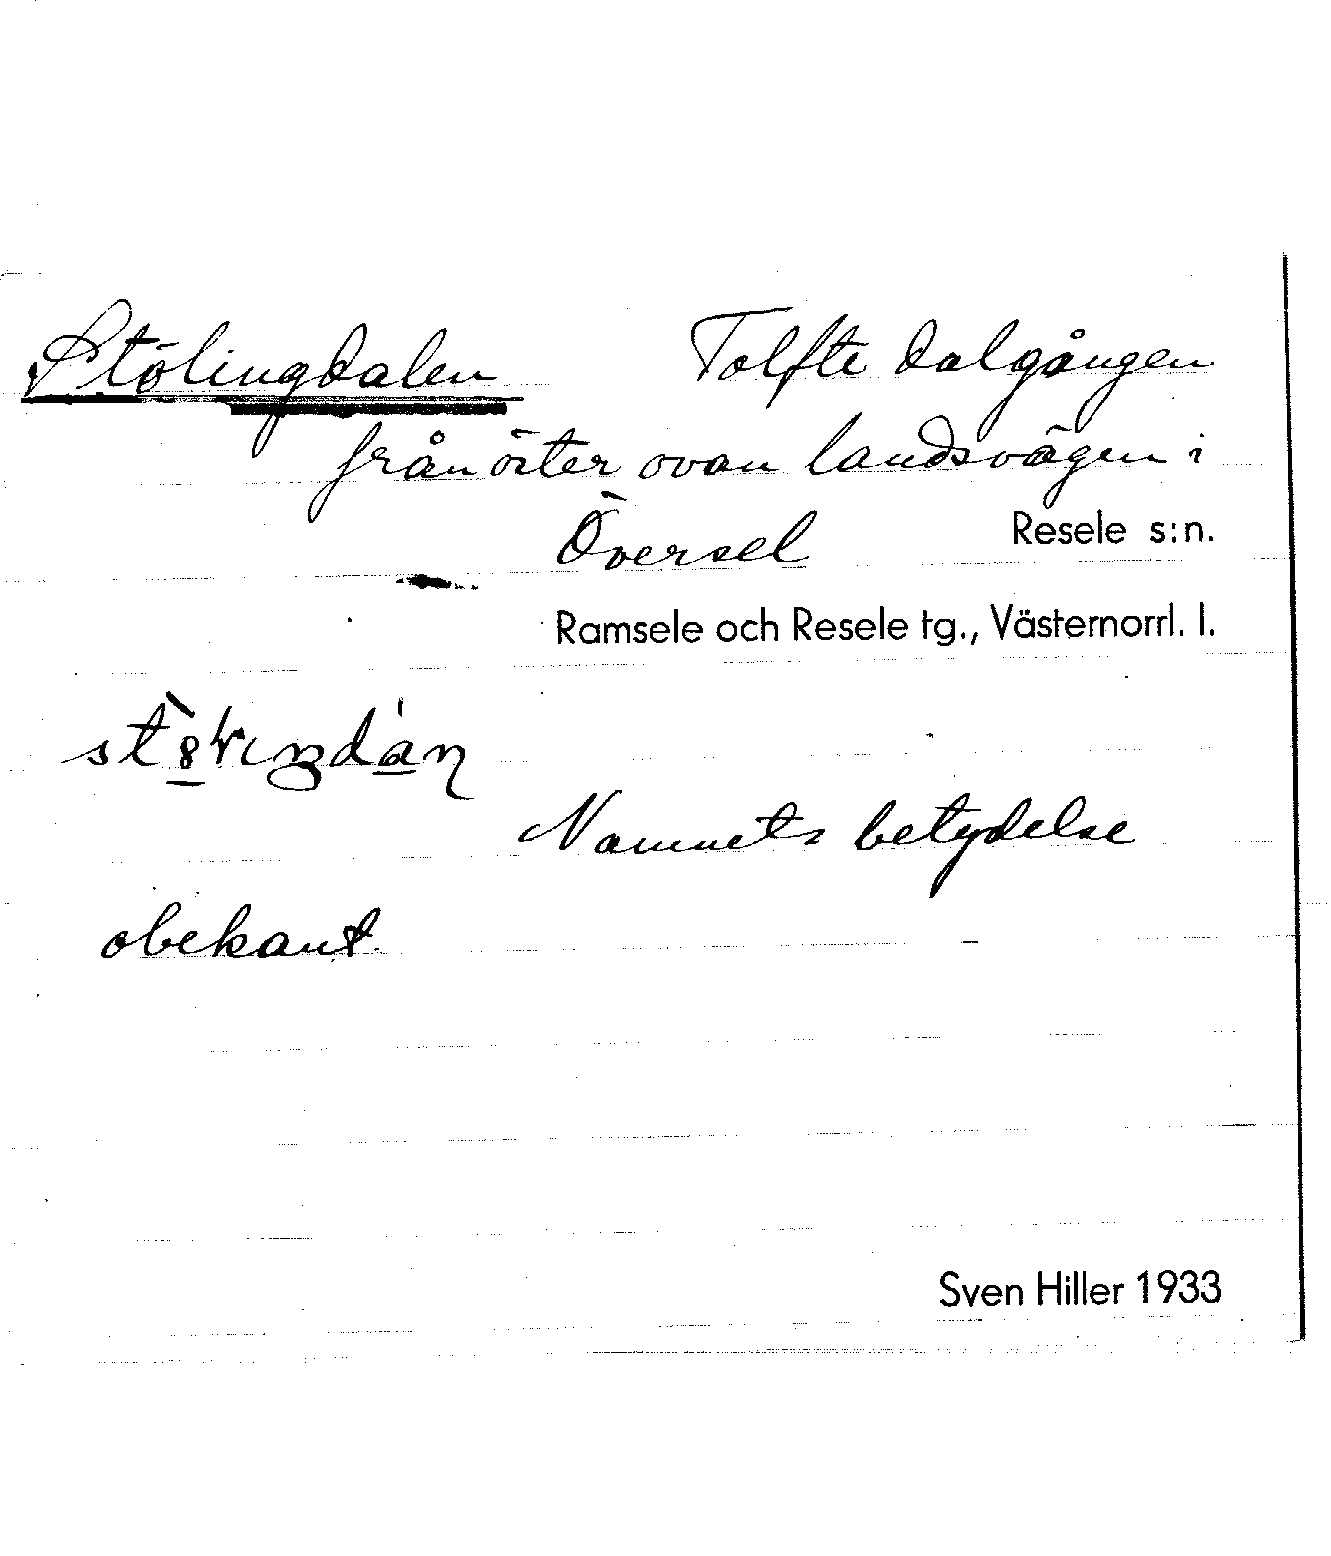 Stölingdalen Tolfte dalgången
från öster ovan landsvägen i
Översel Resele s:n.
Ramsele och Resele tg., Västernorrl. l.
Namnets betydelse
obekant.
Sven Hiller 1933